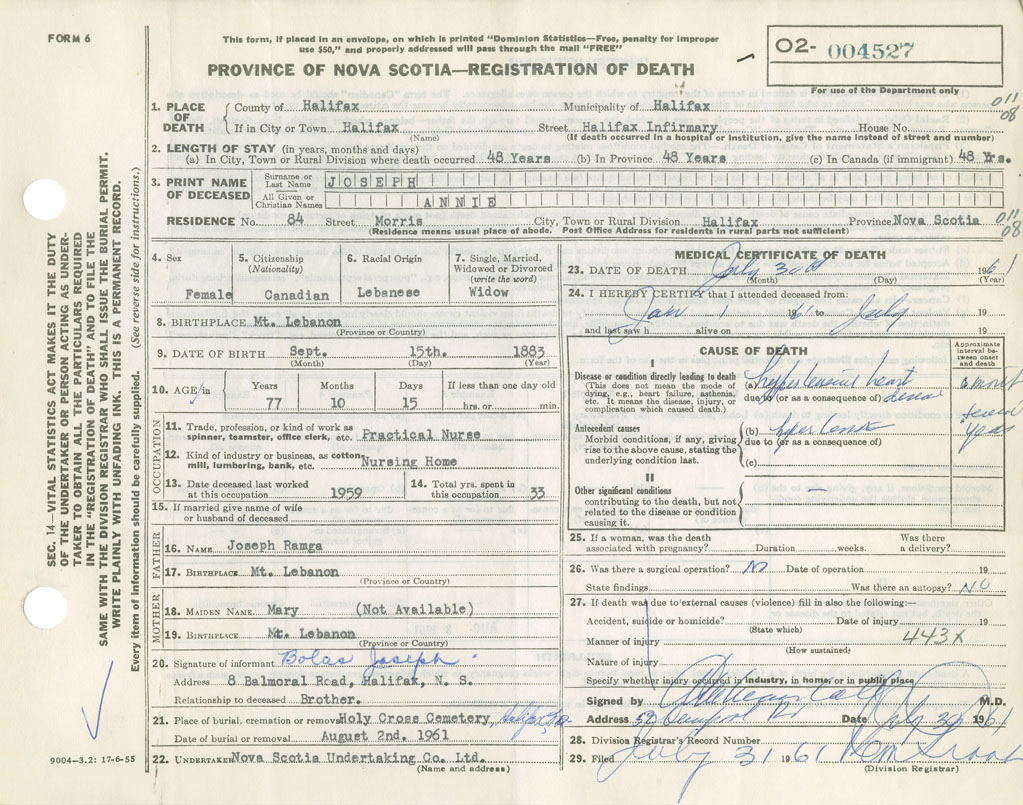 FORM 6
This form, if placed in an envelope, on which is printed "Dominion Statistics—Free, penalty for improper
use $50," and properly addressed will pass through the mail "FREE"
PROVINCE OF NOVA SCOTIA—REGISTRATION OF DEATH
O2- 004527
For use of the Department only
011
08
1. PLACE OF DEATH
County of Halifax Municipality of Halifax
If in City or Town Halifax Street Halifax Infirmary House No.
(Name) (If death occurred in a hospital or institution, give the name instead of street and number)
2. LENGTH OF STAY (in years, months and days)
(a) In City, Town or Rural Division where death occurred 48 Years (b) In Province 48 Years (c) In Canada (if immigrant) 48 Yrs.
3. PRINT NAME OF DECEASED
Surname or Last Name JOSEPH
All Given or Christian Names ANNIE
RESIDENCE No. 84 Street Morris City, Town or Rural Division Halifax Province Nova Scotia
011
08
(Residence means usual place of abode. Post Office Address for residents in rural parts not sufficient)
4. Sex
Female
5. Citizenship
(Nationality)
Canadian
6. Racial Origin
Lebanese
7. Single, Married,
Widowed or Divorced
(write the word)
Widow
8. BIRTHPLACE Mt. Lebanon
(Province or Country)
9. DATE OF BIRTH Sept. 15th. 1883
(Month) (Day) (Year)
10. AGE in
Years Months Days If less than one day old
77 10 15 hrs. or min.
OCCUPATION
11. Trade, profession, or kind of work as
spinner, teamster, office clerk, etc. Practical Nurse
12. Kind of industry or business, as cotton
mill, lumbering, bank, etc. Nursing Home
13. Date deceased last worked
at this occupation 1959
14. Total yrs. spent in
this occupation 33
15. If married give name of wife
or husband of deceased
FATHER
16. NAME Joseph Ramga
17. BIRTHPLACE Mt. Lebanon
(Province or Country)
MOTHER
18. MAIDEN NAME Mary (Not Available)
19. BIRTHPLACE Mt. Lebanon
(Province or Country)
20. Signature of informant Bolas Joseph
Address 8 Balmoral Road, Halifax, N. S.
Relationship to deceased Brother.
21. Place of burial, cremation or removal Holy Cross Cemetery, Halifax, N.S.
Date of burial or removal August 2nd. 1961
22. UNDERTAKER Nova Scotia Undertaking Co. Ltd.
(Name and address)
MEDICAL CERTIFICATE OF DEATH
23. DATE OF DEATH July 30 1961
(Month) (Day) (Year)
24. I HEREBY CERTIFY that I attended deceased from:
Jan 1 1961 to July 19
and last saw h alive on 19
CAUSE OF DEATH
Approximate
interval be-
tween onset
and death
I
Disease or condition directly leading to death
(This does not mean the mode of
dying, e.g., heart failure, asthenia,
etc. It means the disease, injury, or
complication which caused death.)
(a) hypertensive heart
due to (or as a consequence of) disease
Antecedent causes
Morbid conditions, if any, giving
rise to the above cause, stating the
underlying condition last.
(b) hypertension
due to (or as a consequence of)
(c)
years
II
Other significant conditions
contributing to the death, but not
related to the disease or condition
causing it.
—
25. If a woman, was the death Was there
associated with pregnancy? Duration weeks. a delivery?
26. Was there a surgical operation? No Date of operation 19
State findings Was there an autopsy? NO
27. If death was due to external causes (violence) fill in also the following:—
Accident, suicide or homicide? Date of injury 19
(State which)
Manner of injury 443X
(How sustained)
Nature of injury
Specify whether injury occurred in industry, in home, or in public place
Signed by M.D.
Address Date July 30 1961
28. Division Registrar's Record Number
29. Filed July 31 1961
(Division Registrar)
SEC. 14—VITAL STATISTICS ACT MAKES IT THE DUTY
OF THE UNDERTAKER OR PERSON ACTING AS UNDER-
TAKER TO OBTAIN ALL THE PARTICULARS REQUIRED
IN THE "REGISTRATION OF DEATH" AND TO FILE THE
SAME WITH THE DIVISION REGISTRAR WHO SHALL ISSUE THE BURIAL PERMIT.
WRITE PLAINLY WITH UNFADING INK. THIS IS A PERMANENT RECORD.
Every item of information should be carefully supplied. (See reverse side for instructions.)
9004—3.2: 17-6-55